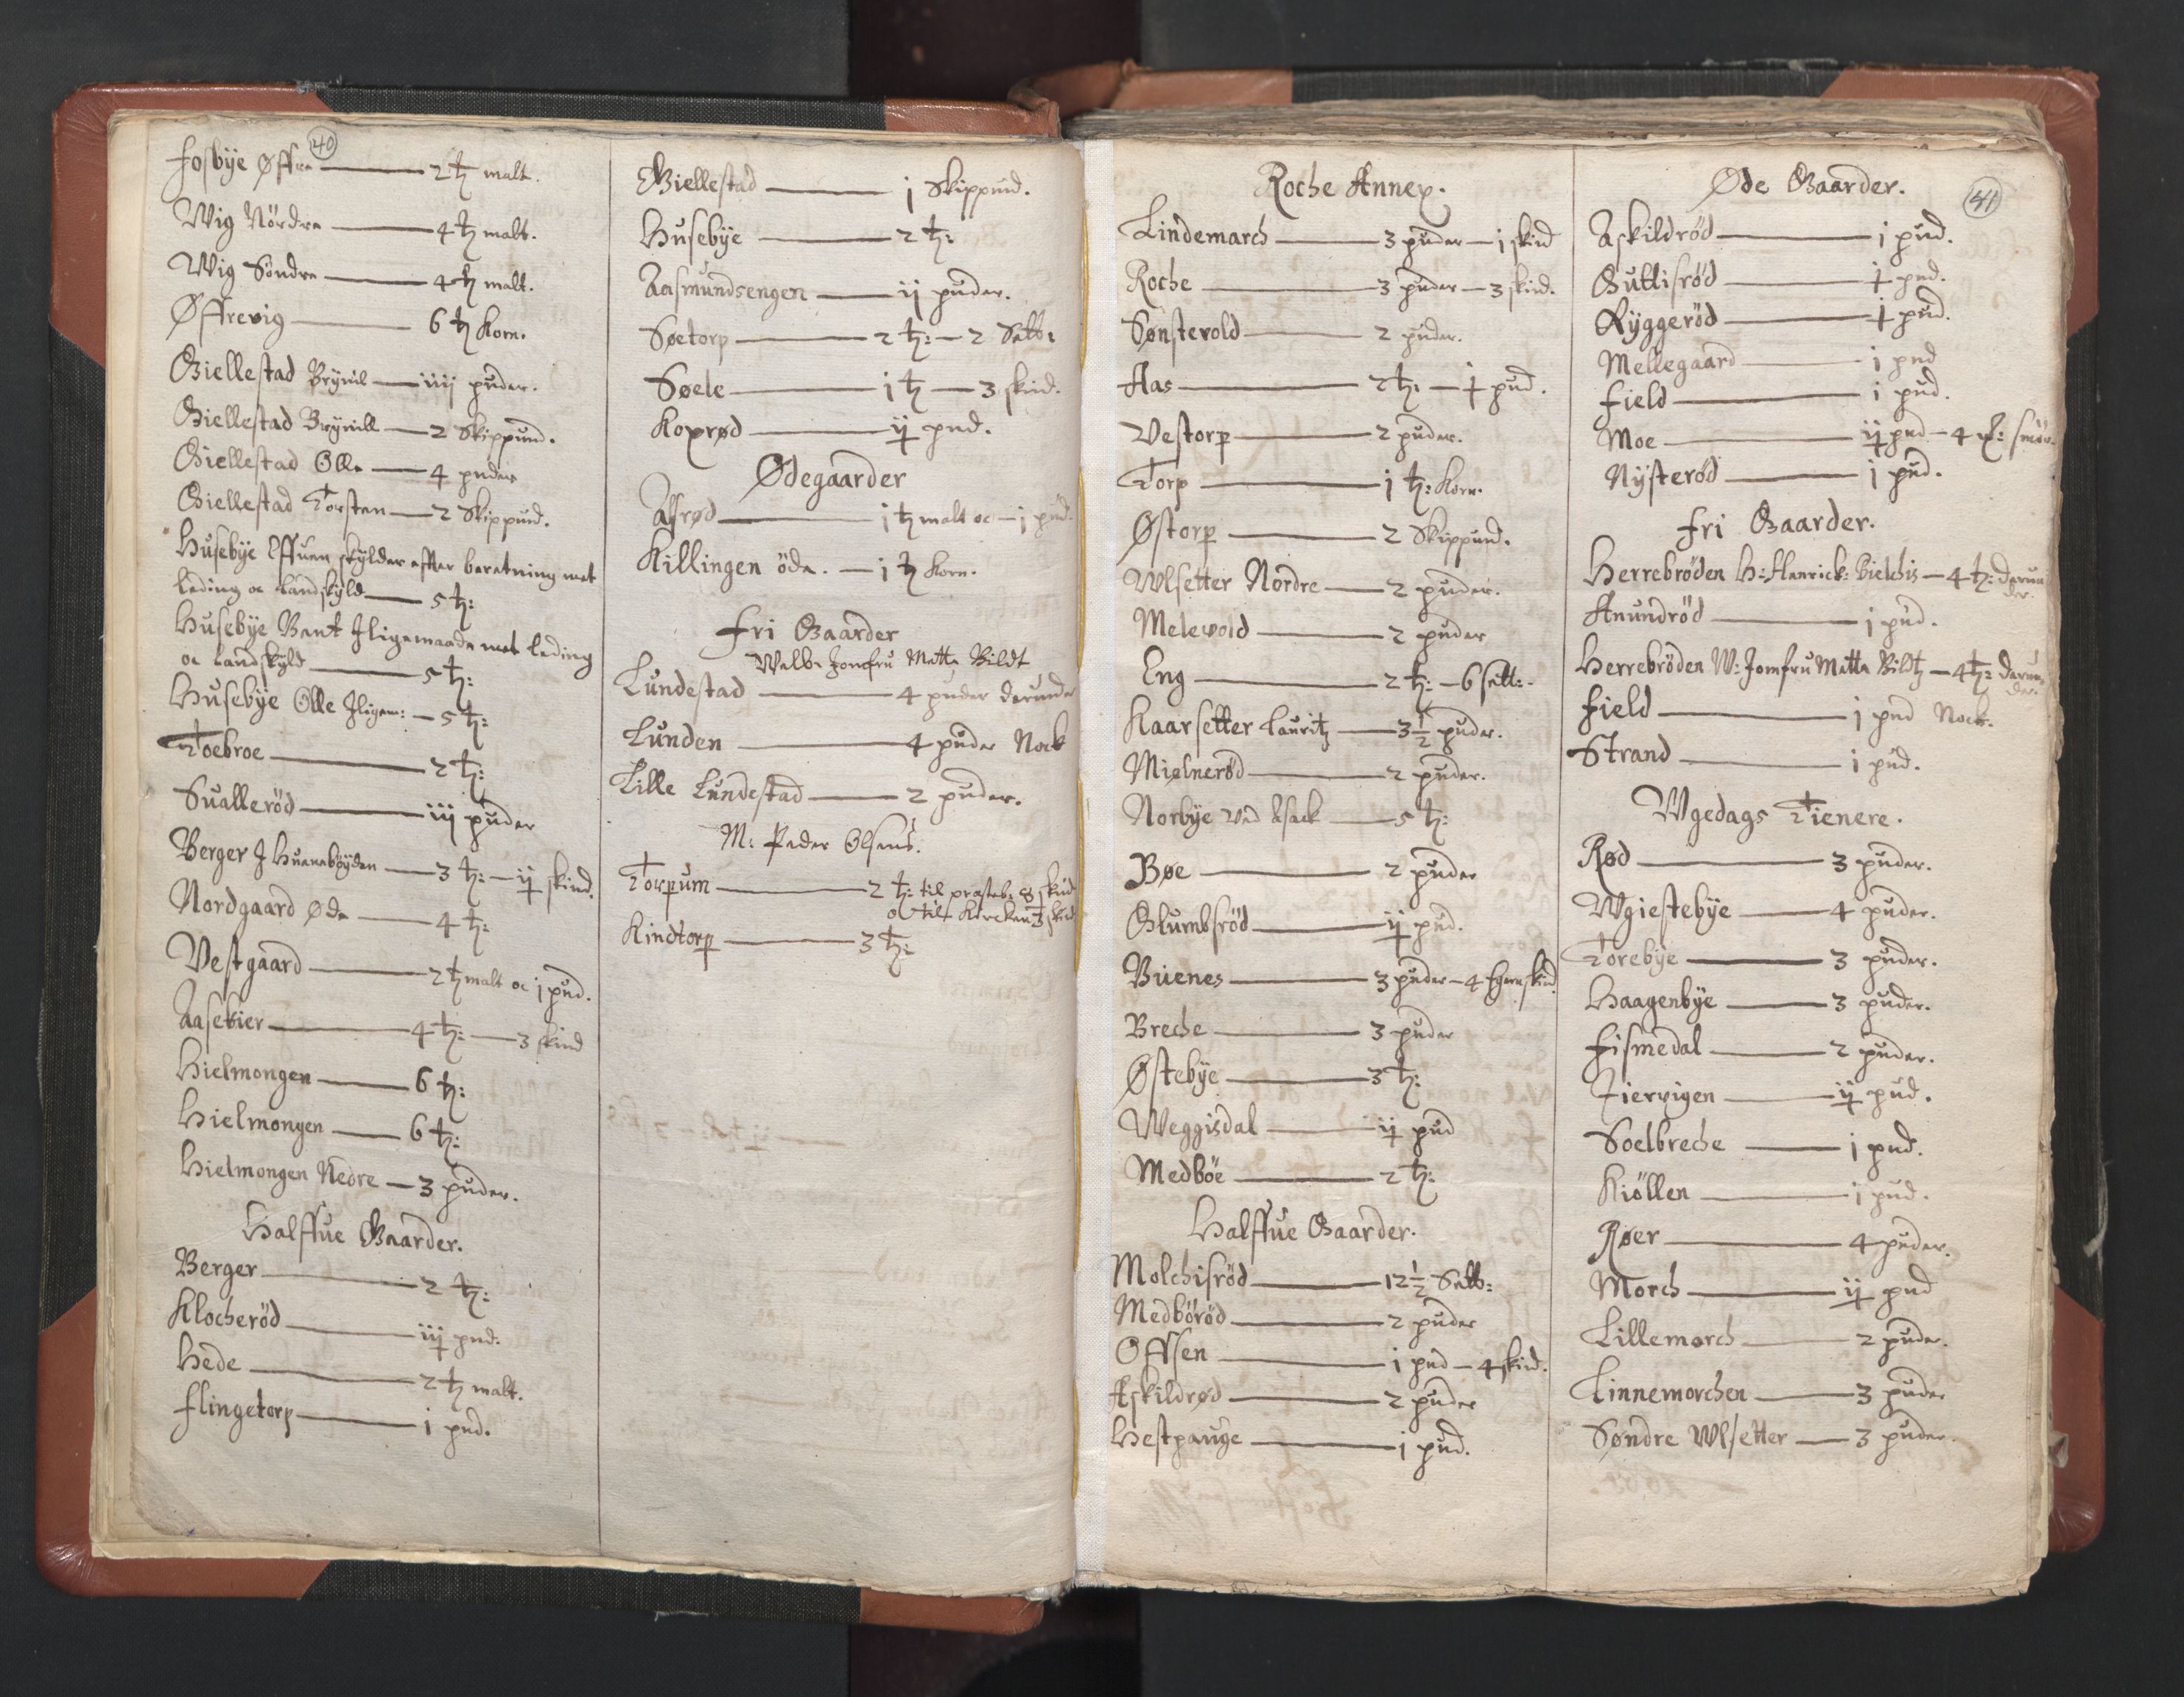 40
Fosbye Øffre — 2 tħ malt.
Wig Nördre — 4 tħ malt.
Wig Söndre — 4 tħ malt.
Øffrevig — 6 tħ Korn.
Giellestad Brÿnil — iiij puder.
Giellestad Brynill — 2 Skippund.
Giellestad Olle — 4 puder
Giellestad Torsten — 2 Skippund.
Husebÿe Effuen skylder effter beretning met
leding oc Landskyld — 5 tħ:
Husebÿe Bent Jligemaade met leding
oc Landskyld — 5 tħ:
Husebÿe Olle Jligem: — 5 tħ:
Toebroe — 2 tħ:
Suallerød — iij puder
Berger J Huenebøyden — 3 tħ: — ij skind.
Nordgaard Øde — 4 tħ:
Vestgaard — 2 tħ malt oc j pud.
Aasekier — 4 tħ: — 3 skind
Hielmongen — 6 tħ:
Hielmongen — 6 tħ:
Hielmongen Nedre — 3 puder.
Halffue Gaarder.
Berger — 2 tħ:
Klocheröd — iij pud.
Hede — 2 tħ malt.
Flingetorp — i pud.
Giellestad — j Skippund.
Husebÿe — 2 tħ:
Aasmundsengen — ij puder.
Søetorp — 2 tħ: — 2 Sett:
Søele — i tħ — 3 skind.
Koxrød — ij pud.
Ødegaarder
Asrød — i tħ malt oc — j pud.
Killingen öde. — i tħ Korn.
Fri Gaarder
Welb. Jomfru Mette Bildt
Lundestad — 4 puder derunder
Lunden — 4 puder Nock
Lille Lundestad — 2 puder.
M: Peder Olsens.
Torpum — 2 tħ: til presteb: 8 skind
oc til Kircken 3 skind
Kindtorp — 3 tħ:
Roche Annex.
Lindemarch — 3 puder — i skind
Roche — 3 puder — 3 skind.
Sønstevold — 2 puder.
Aas — 2 tħ: — j pud.
Vestorp — 2 puder.
Torp — 1 tħ: Korn.
Østorp — 2 Skippund.
Wlsetter Nordre — 2 puder.
Melevold — 2 puder
Eng — 2 tħ: — 6 sett:
Kaarsetter Lauritz — 3½ puder.
Mielnerød — 2 puder.
Norbÿe ved Esack — 5 tħ:
Bøe — 2 puder
Glumbsröd — ij pud.
Buenes — 3 puder — 4 Egernskind
Breche — 3 puder
Østebÿe — 3 tħ:
Weggisdal — ij pud
Medböe — 2 tħ:
Halffue Gaarder.
Molchisröd — 12½ Sett:
Medböröd — 2 puder
Offsen — i pud — 4 skind.
Askildrød — 2 puder
Hestpauge — i pud.
Øde Gaarder.
41
Askildröd — i pud.
Guttisröd — j pud.
Ryggeröd — j pud.
Mellegaard — i pud
Field — i pud.
Moe — ij pud — 4 smör.
Nÿsteröd — i pud.
Fri Gaarder.
Herrebröden H: Henrick: Bielchis — 4 tħ: derun
der.
Anundröd — i pud.
Herrebröden W: Jomfru Mette Biltz — 4 tħ: derun
der.
Field — i pud Nock.
Strand — i pud.
Wgedags Tienere.
Rød — 3 puder.
Wgiestebÿe — 4 puder.
Torebÿe — 3 puder.
Haagenbÿe — 3 puder.
Fismedal — 2 puder.
Tiervigen — ij pud.
Soelbreche — i pud.
Kiöllen — i pud.
Røer — 4 puder.
Morch — ij pud
Lillemorch — 2 puder.
Linnemorchen — 3 puder
Søndre Wlsetter — 3 puder.